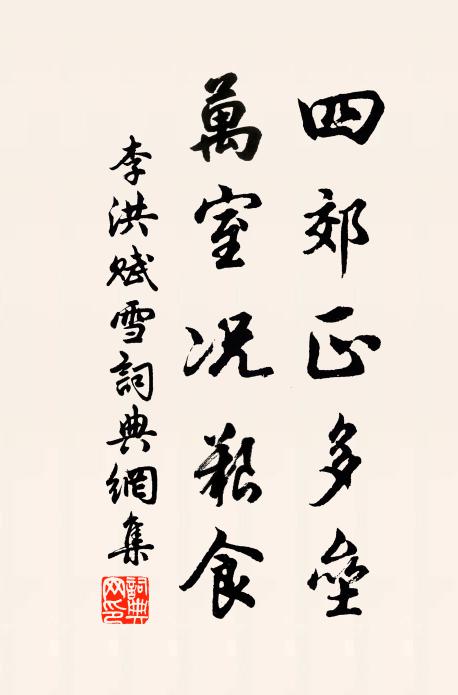 四郊正多壘
萬室况艱食
李洪賦雪詞典網集
詞典网印